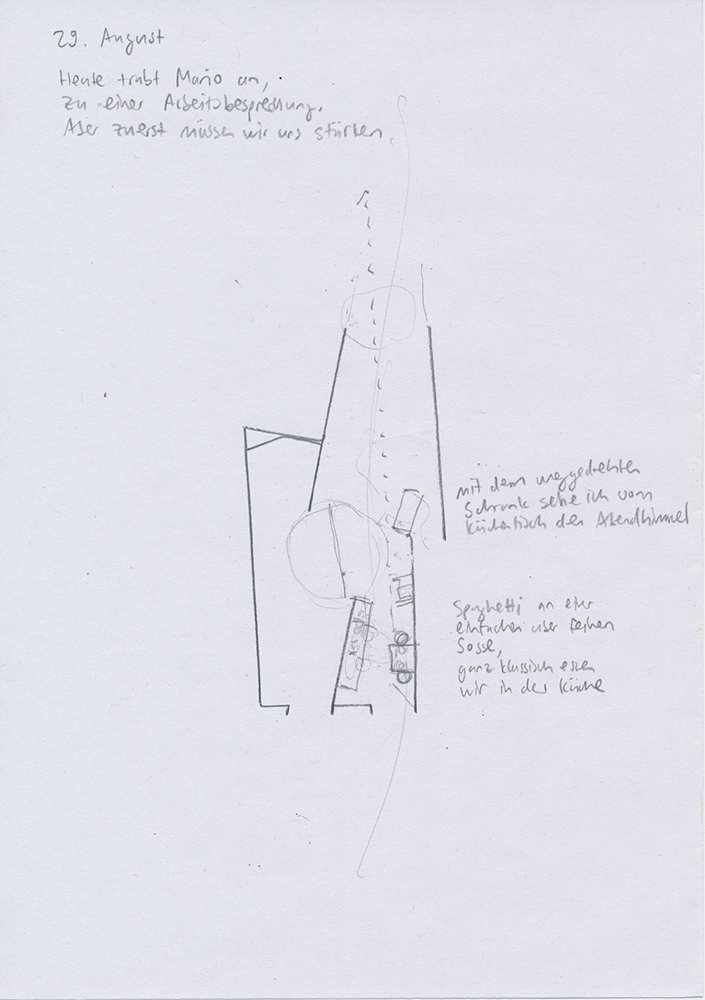 29. August
Heute trabt Mario an,
zu einer Arbeitsbesprechung.
Aber zuerst müssen wir uns stärken.
mit dem weggedrehten
Schrank sehe ich vom
Küchentisch den Abendhimmel
Spaghetti an einer
einfachen aber feinen
Sosse,
ganz klassisch essen
wir in der Küche